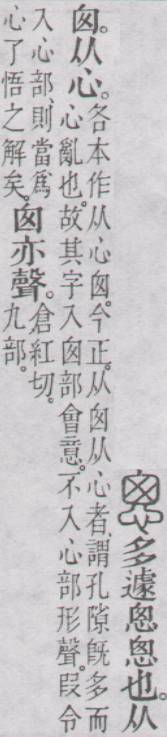 悤多遽悤悤也。从
囪。从心。各本作从心囪。今正。从囪从心者、謂孔隙旣多而
心亂也。故其字入囪部會意。不入心部形聲。叚令
入心部、則當爲
心了悟之解矣。囪亦聲。倉紅切。
九部。